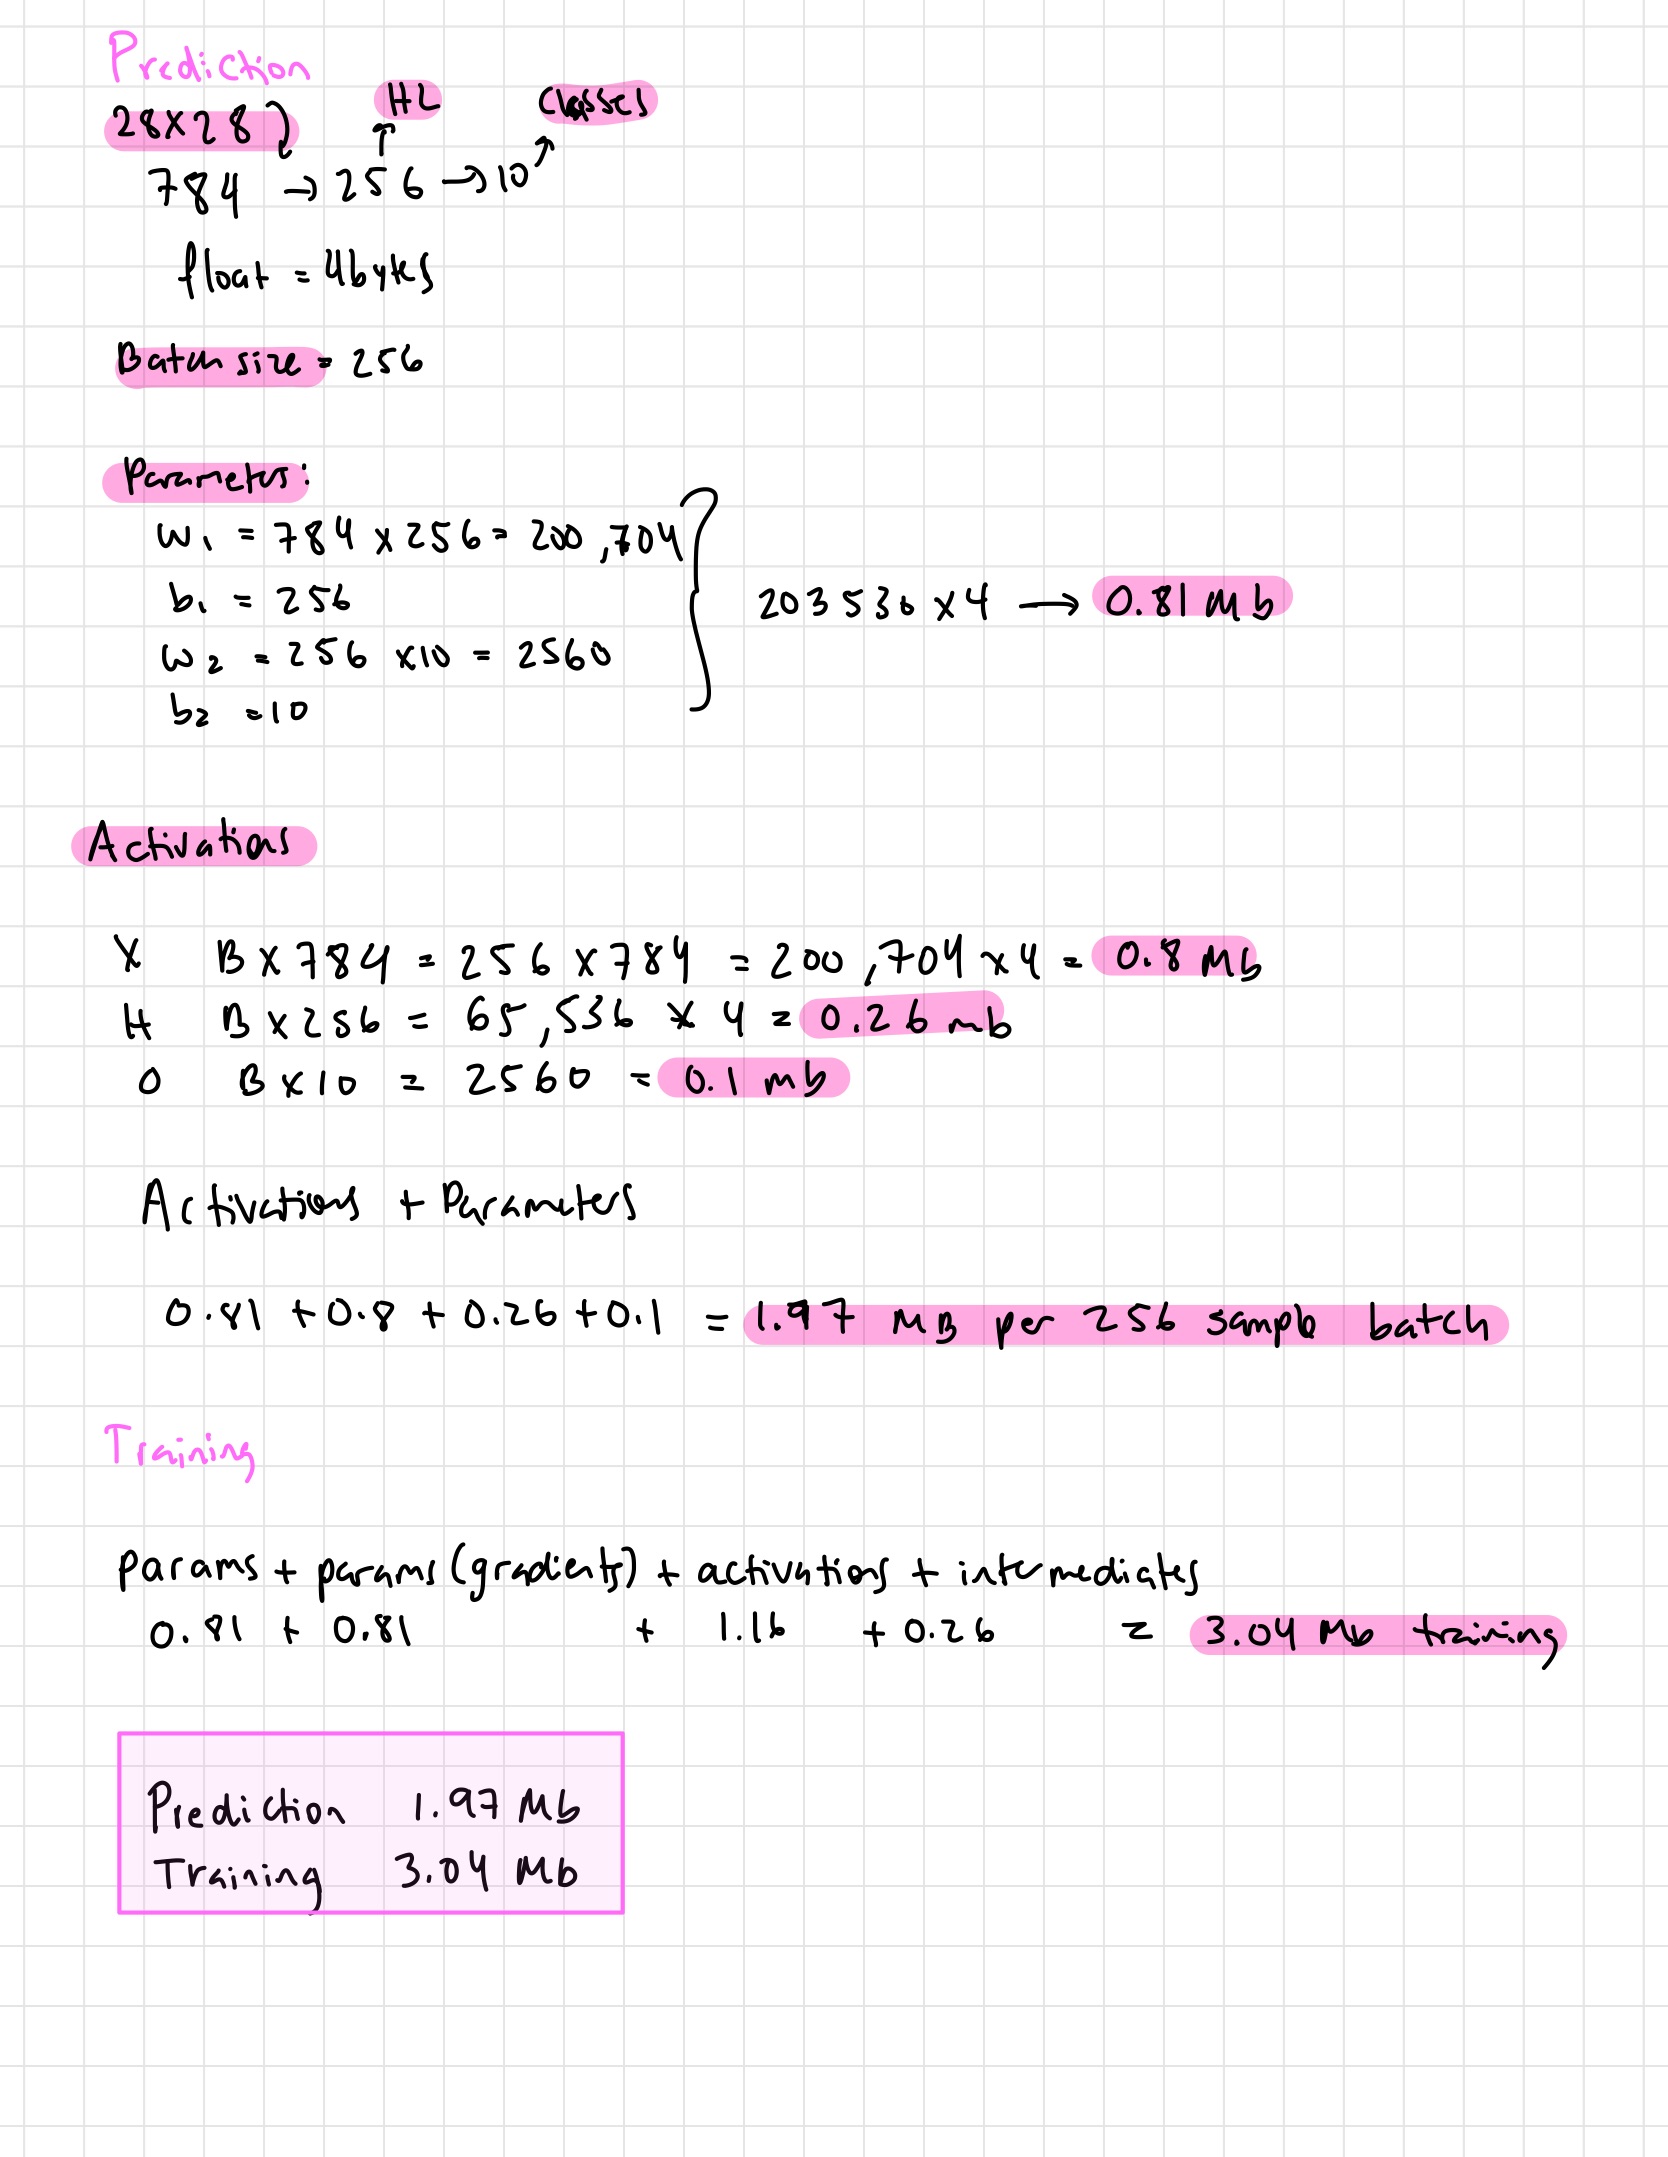 Prediction
HL
Classes
28x28
784 → 256 → 10
float = 4bytes
Batch size = 256
Parameters:
W1 = 784 x 256 = 200,704
b1 = 256
203530 x 4 → 0.81 Mb
W2 = 256 x10 = 2560
b2 = 10
Activations
X B x 784 = 256 x 784 = 200,704 x 4 = 0.8 Mb
H B x 256 = 65,536 x 4 = 0.26 mb
O B x 10 = 2560 = 0.1 mb
Activations + Parameters
0.81 + 0.8 + 0.26 + 0.1 = 1.97 MB per 256 sample batch
Training
params + params (gradients) + activations + intermediates
0.81 + 0.81 + 1.16 + 0.26 = 3.04 Mb training
Prediction 1.97 Mb
Training 3.04 Mb